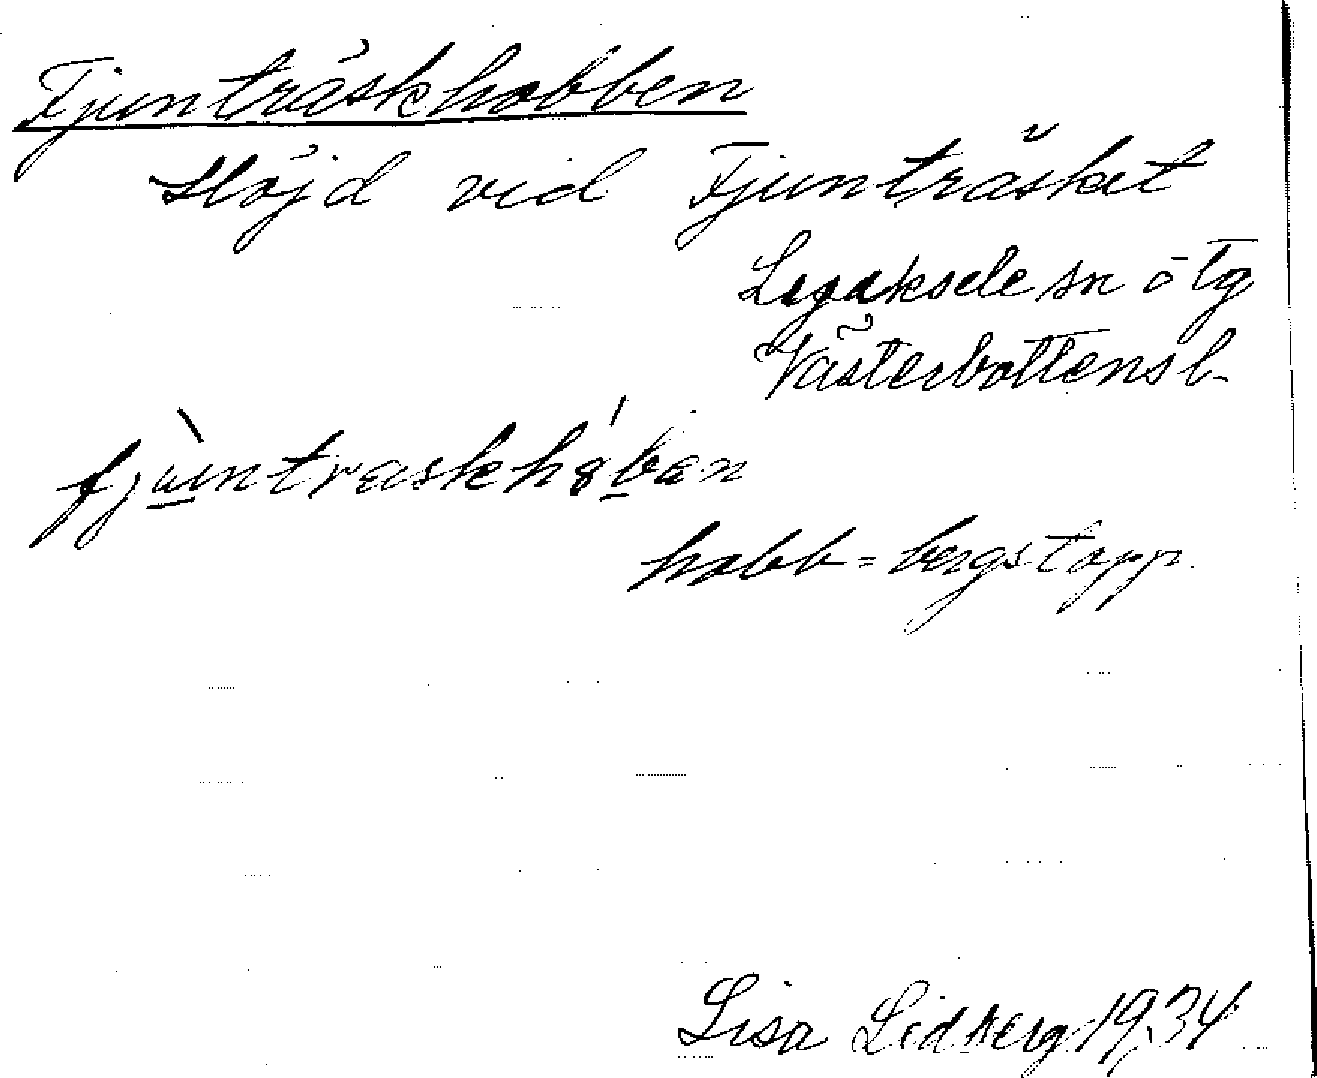 Fjunträskhobben
Höjd vid Fjunträsket
Lycksele sn o tg
Västerbottens l.
fjuntræskhoban
hobb = bergstopp.
Lisa Lidberg 1934